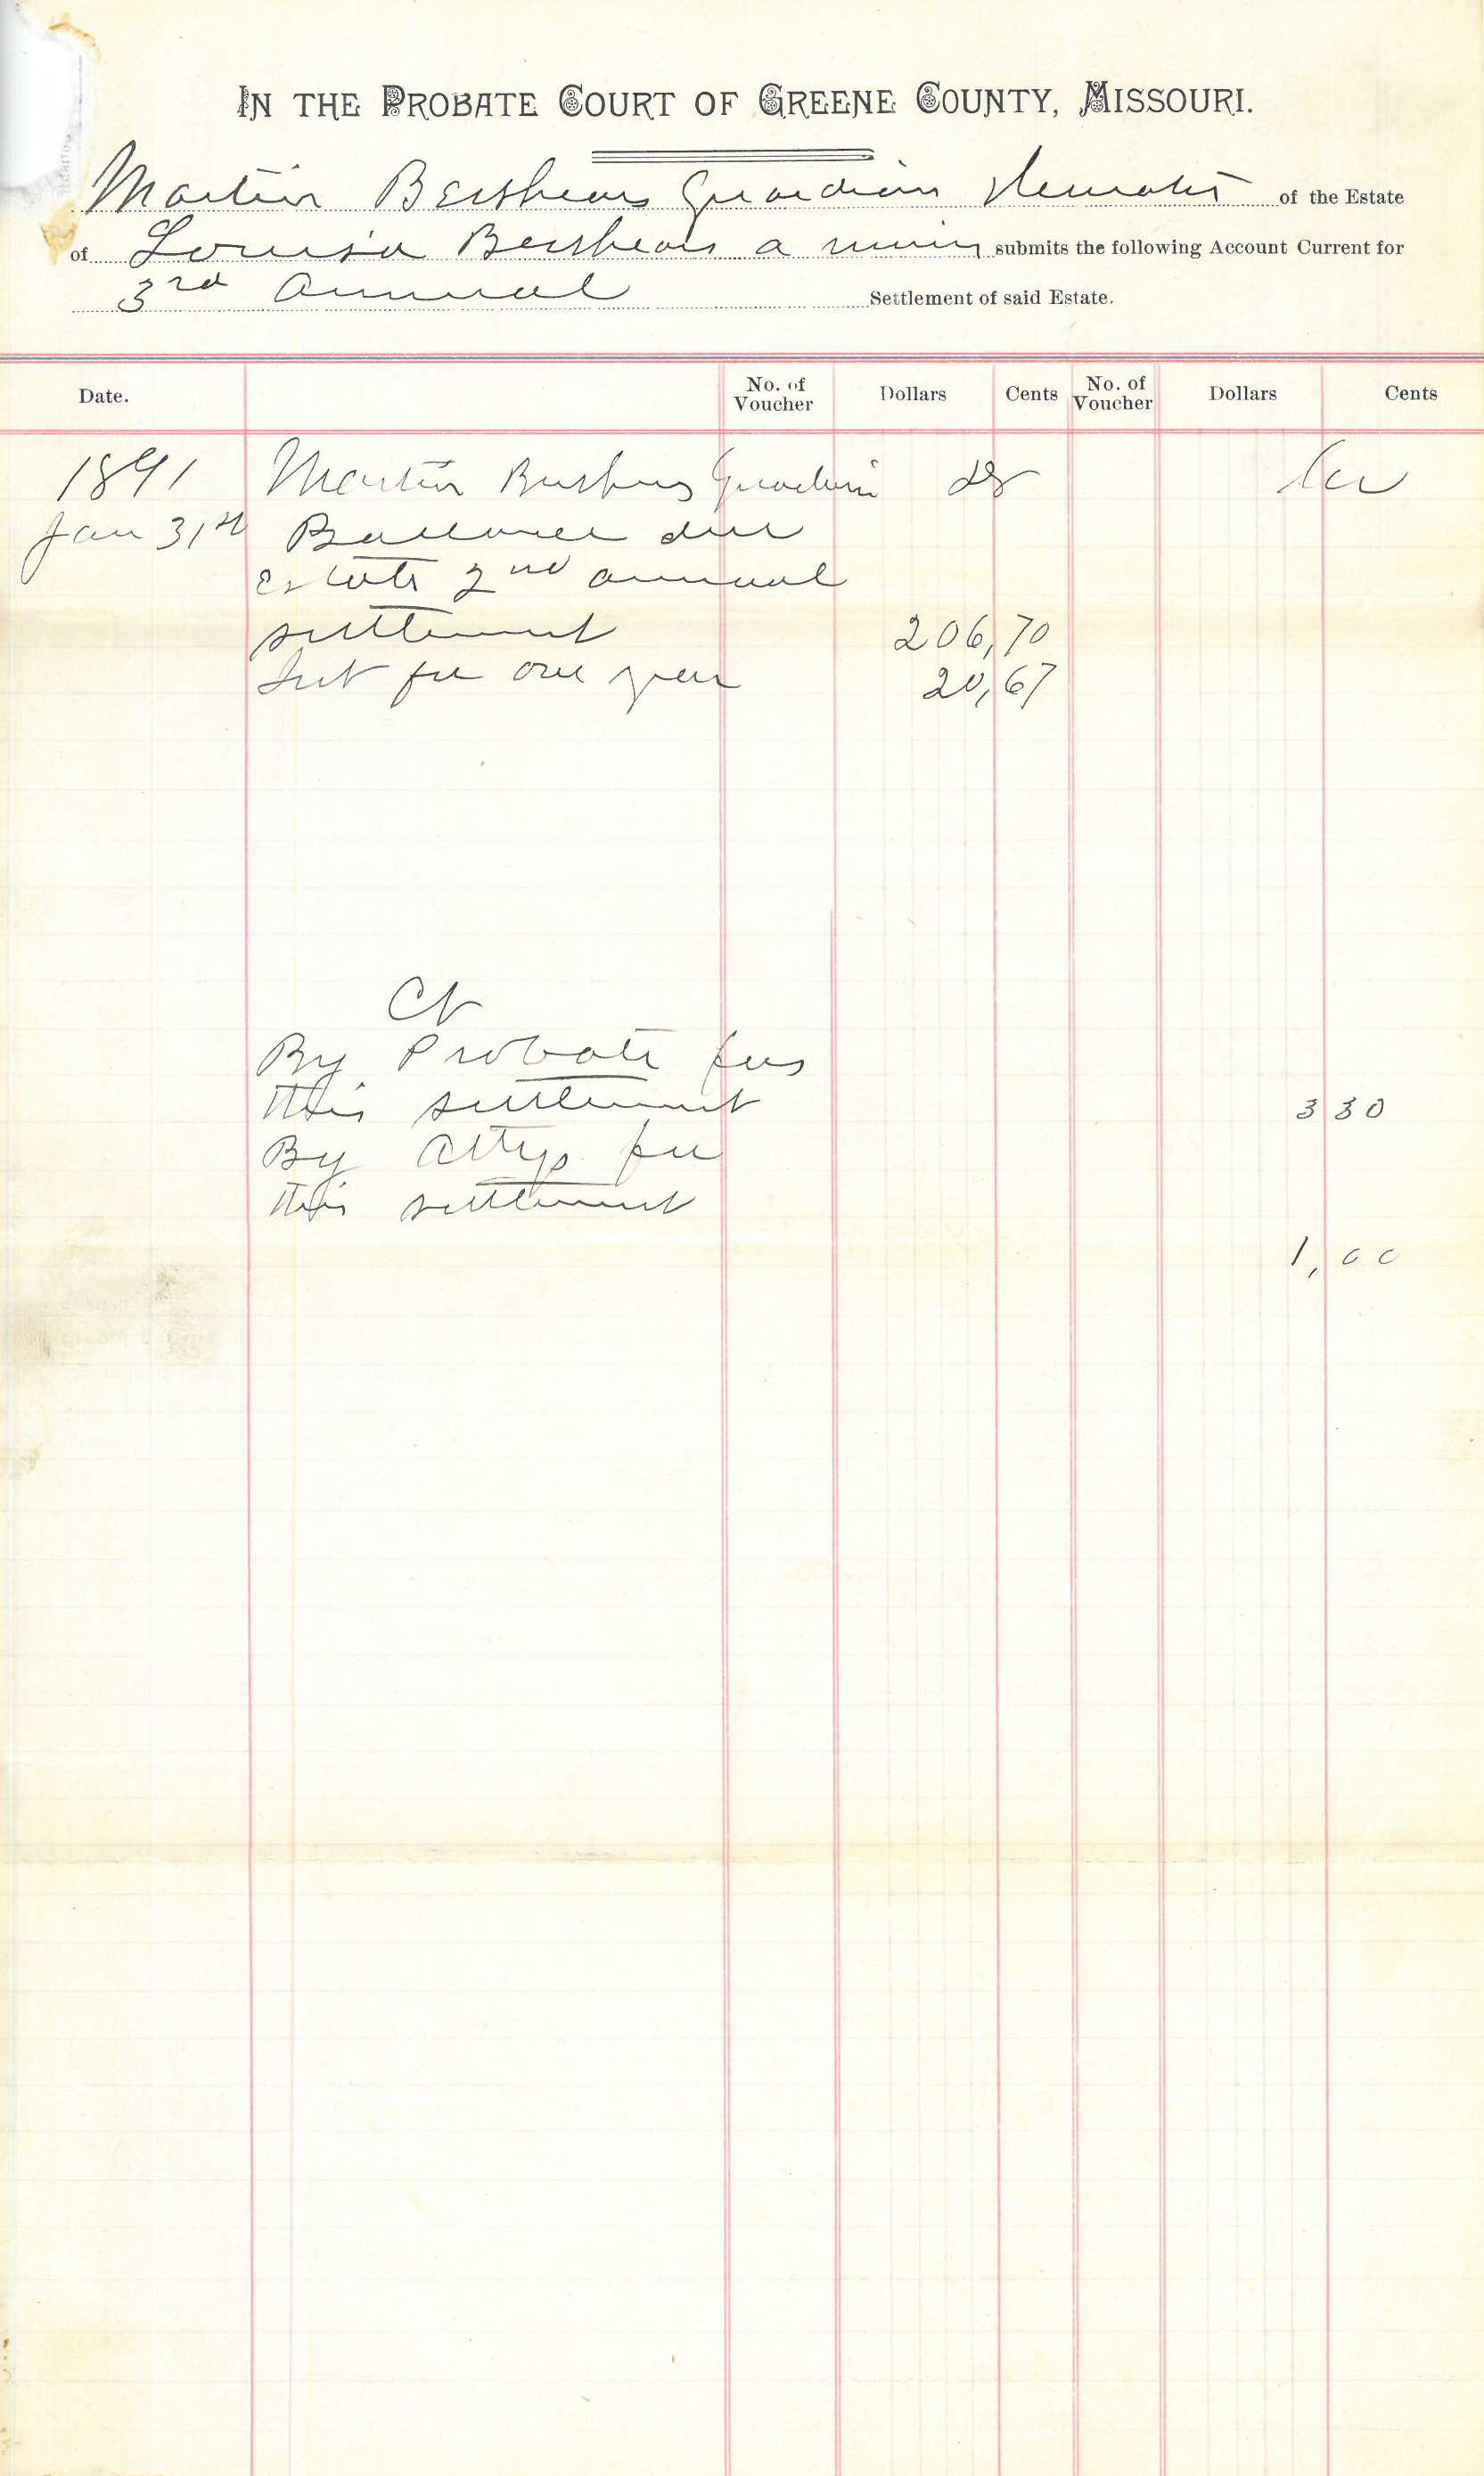 IN THE PROBATE COURT OF GREENE COUNTY, MISSOURI.
Martin Beshears Guardian of the Estate
of Louisa Beshears a minor submits the following Account Current for
3rd Annual Settlement of said Estate.
Date. No. of Voucher Dollars Cents No. of Voucher Dollars Cents
1891 Martin Beshears Guardian Dr Cr
Jan 31st Ballance due
estate 2nd annual
settlement 206,70
Int for one year 20,67
Cr
By Probate fees
this settlement 3 30
By Attys fee
this settlement
1,00